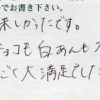 でお書き下さい。
楽しかったです。
チョコも白あんも
ごく大満足でした